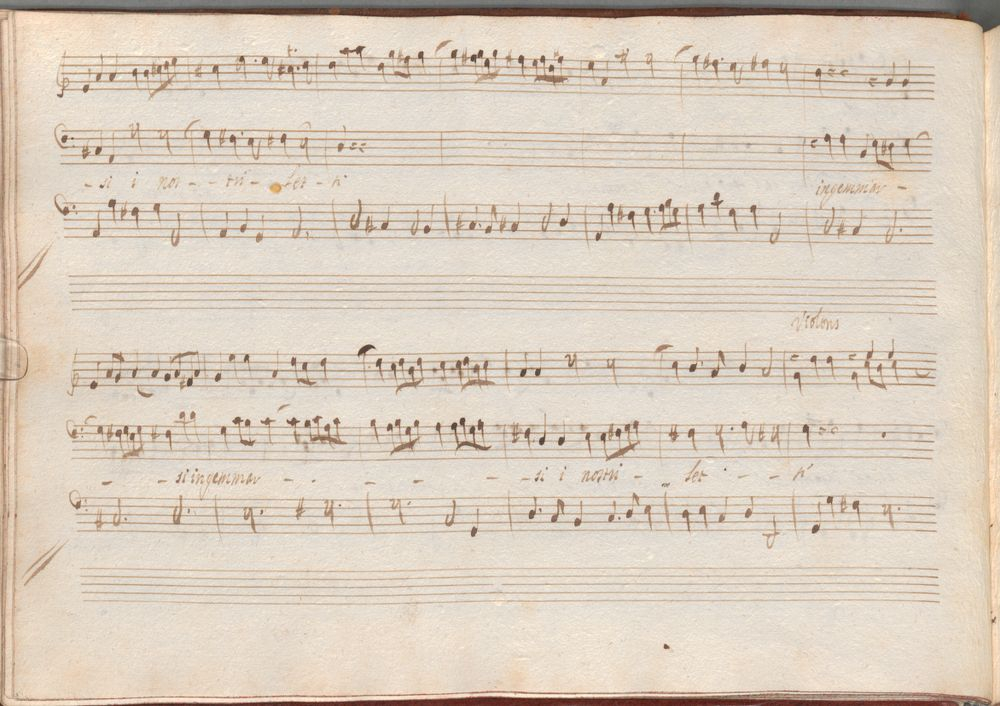 - si i nos - - tri - let - ti ingemmar -
Violons
- - si ingemmar - - - - - - si i nostri - let - - - ti